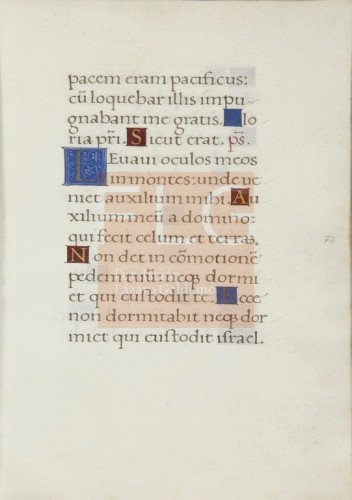 pacem eram pacificus:
cũ loquebar illis impu
gnabant me gratis. Glo
ria pr̃i. Sicut erat. ps̃.
LEuaui oculos meos
in montes: unde ue
niet auxilium mihi. Au
xilium meũ a domino:
qui fecit celum et terras.
Non det in cõmotionẽ
pedem tuũ: neqꝫ dormi
et qui custodit te. Ecce
non dormitabit neqꝫ dor
miet qui custodit israel.